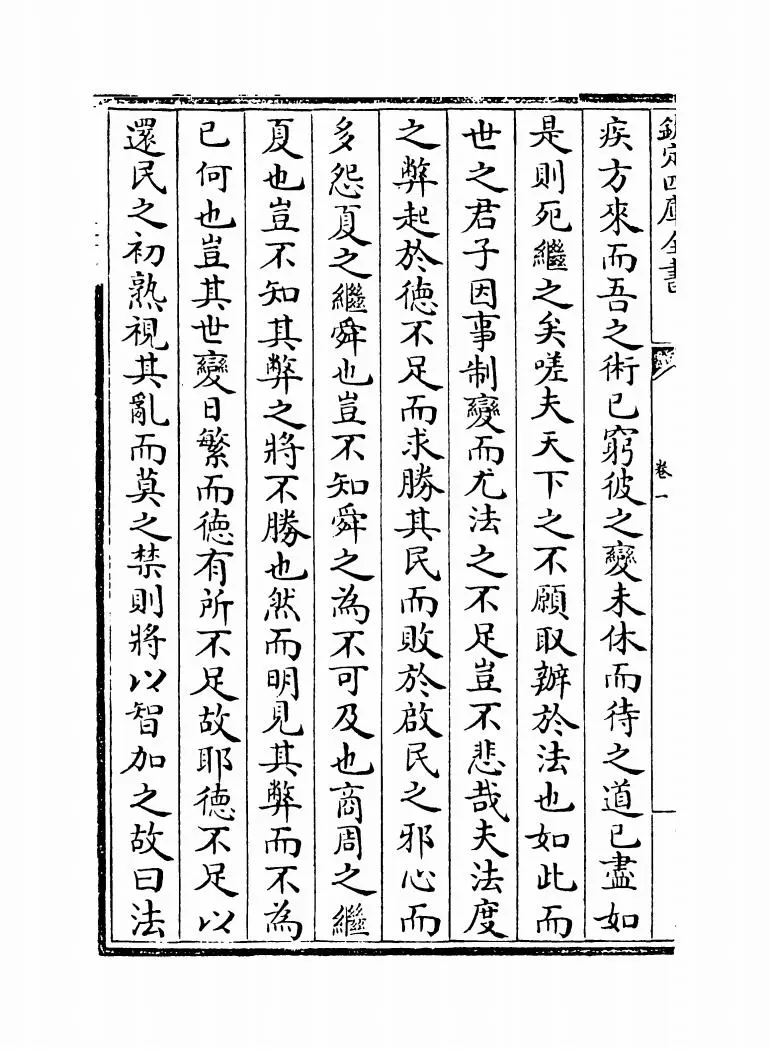 欽定四庫全書
卷一
疾方來而吾之術已窮彼之變未休而待之道已盡如
是則死繼之矣嗟夫天下之不願取辦於法也如此而
世之君子因事制變而尤法之不足豈不悲哉夫法度
之弊起於徳不足而求勝其民而敗於啟民之邪心而
多怨夏之繼舜也豈不知舜之為不可及也商周之繼
夏也豈不知其弊之將不勝也然而明見其弊而不為
已何也豈其世變日繁而徳有所不足故耶徳不足以
還民之初熟視其亂而莫之禁則將以智加之故曰法